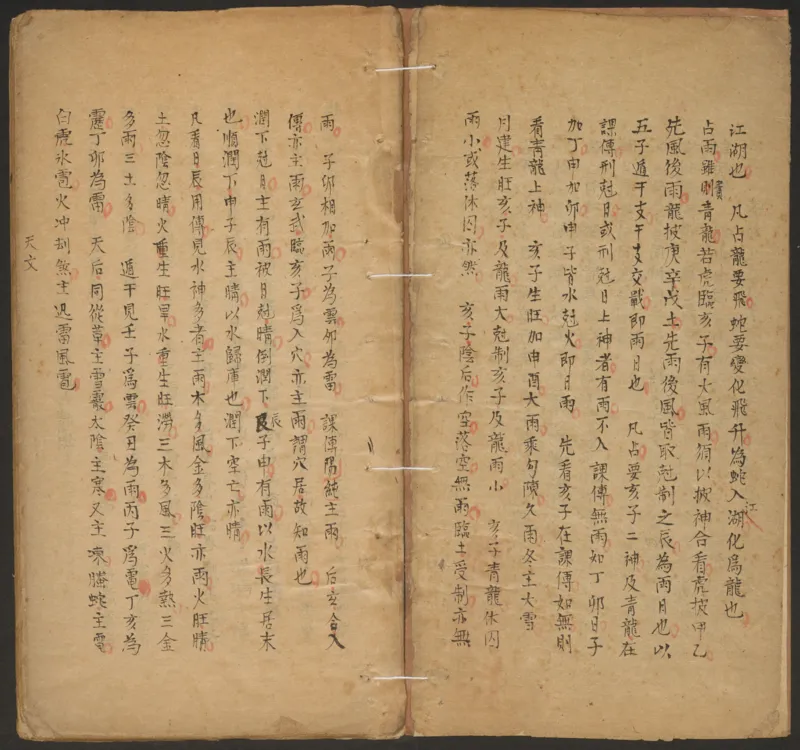 江湖也 凡占龍要飛蛇要變化飛升為蛇入江湖化為龍也
占雨雖則貴青龍若虎臨亥子有大風雨須以披神合看虎披甲乙
先風後雨龍披庚辛戊土先雨後風皆取尅制之辰為雨日也以
五子遁干支干支交戰即雨日也 凡占要亥子二神及青龍在
課傳刑尅日或刑尅日上神者有雨不入課傳無雨如丁卯日子
加丁申加卯申子皆水尅火即日雨 先看亥子在課傳如無則
看青龍上神 亥子生旺加申酉大雨乘勾陳久雨冬主大雪
月建生旺亥子及龍雨大尅制亥子及龍雨小 亥子青龍休囚
雨小或落休囚亦然 亥子陰后作空落空無雨臨土受制亦無
雨 子卯相加雨子為雲卯為雷 課傳陽純主雨 后玄合入
傳亦主雨玄武臨亥子為入穴亦主雨謂穴居故知雨也
潤下尅日主有雨被日尅晴倒潤下辰子申有雨以水長生居末
也順潤下申子辰主晴以水歸庫也潤下空亡亦晴
凡看日辰用傳見水神多者主雨木多風金多陰旺亦雨火旺晴
土忽陰忽晴火重生旺旱水重生旺澇三木多風三火多熱三金
多雨三土多陰 遁干見壬子為雲癸丑為雨丙子為電丁亥為
霹丁卯為雷 天后同從草主雪霰太陰主寒又主凍螣蛇主電
白虎氷雹火冲刦煞主迅雷風電
天文